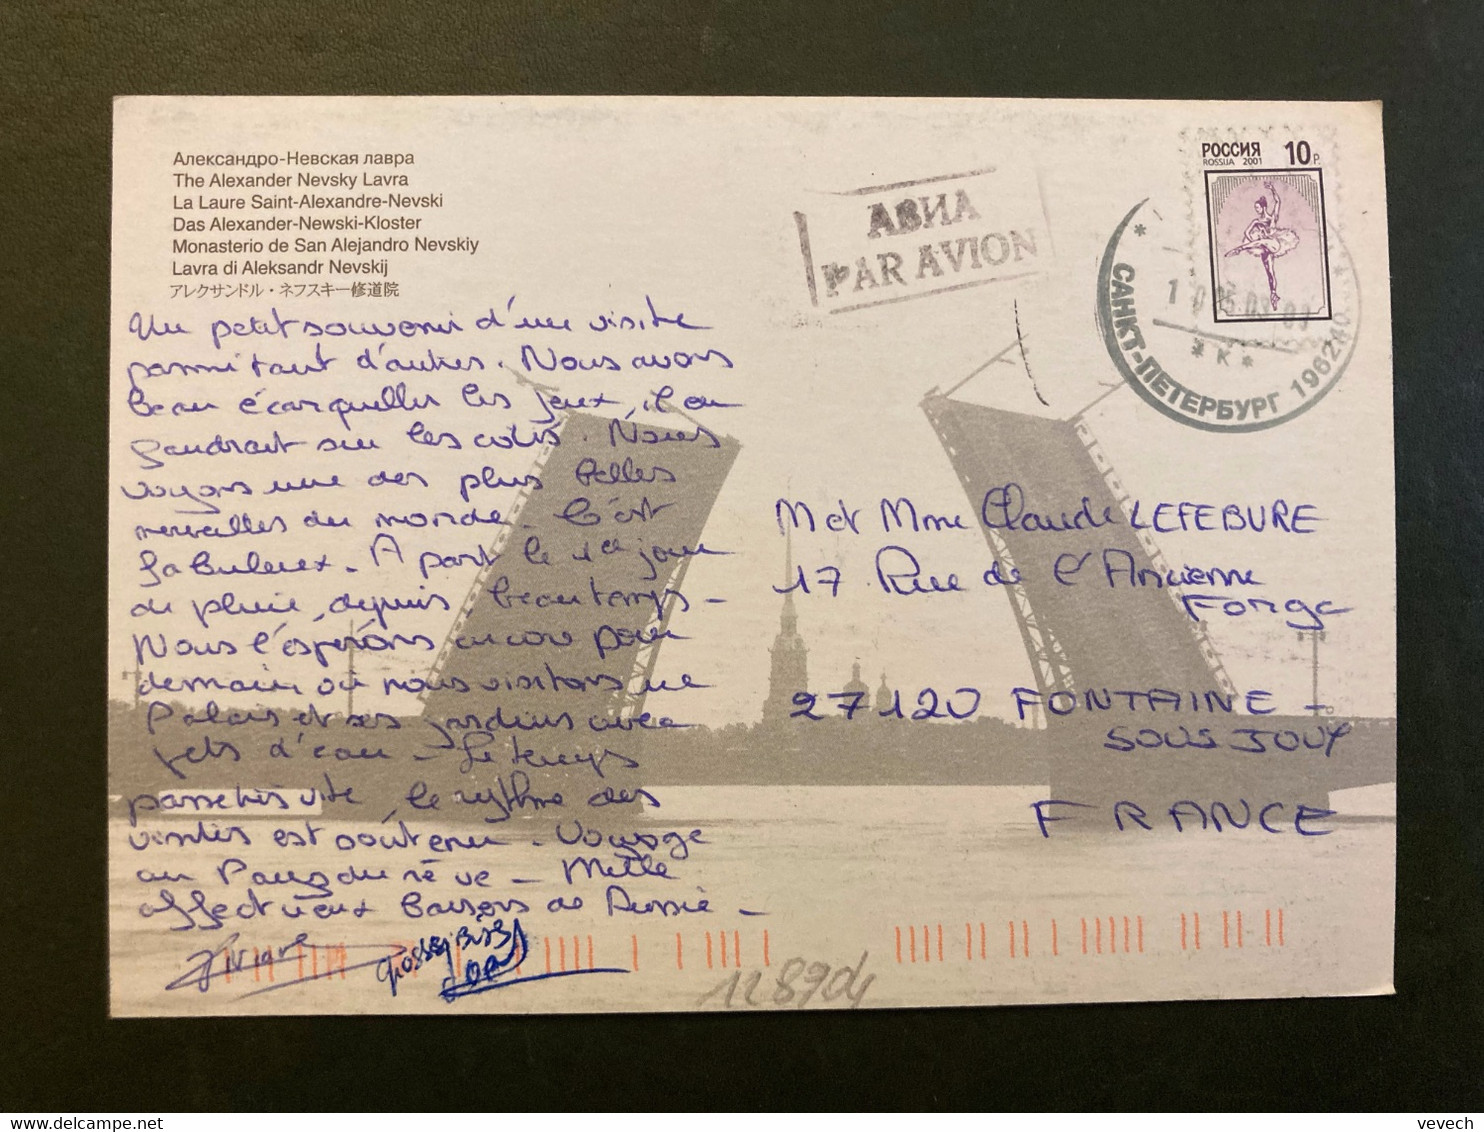 Александро-Невская лавра
The Alexander Nevsky Lavra
La Laure Saint-Alexandre-Nevski
Das Alexander-Newski-Kloster
Monasterio de San Alejandro Nevskiy
Lavra di Aleksandr Nevskij
アレクサンドル・ネフスキー修道院
Un petit souvenir d'une visite
parmi tant d'autres. Nous avons
beau écarquiller les yeux, il en
faudrait sur les cotés. Nous
voyons une des plus belles
merveilles du monde - C'est
fabuleux - A part le 1er jour
de pluie, depuis beau temps -
Nous l'espérons encore pour
demain où nous visitons
Palais et ses jardins avec
jets d'eau - Le temps
passe très vite, le rythme des
visites est soutenu - Voyage
au Pays du rêve - Mille
affectueux baisers de Russie -
grosses bises
АВИА
PAR AVION
РОССИЯ 10 р.
ROSSIJA 2001
САНКТ-ПЕТЕРБУРГ 196240
* К *
M et Mme Claude LEFEBURE
17 Rue de l'Ancienne
Forge
27120 FONTAINE -
SOUS JOUY
FRANCE
128904
vevech